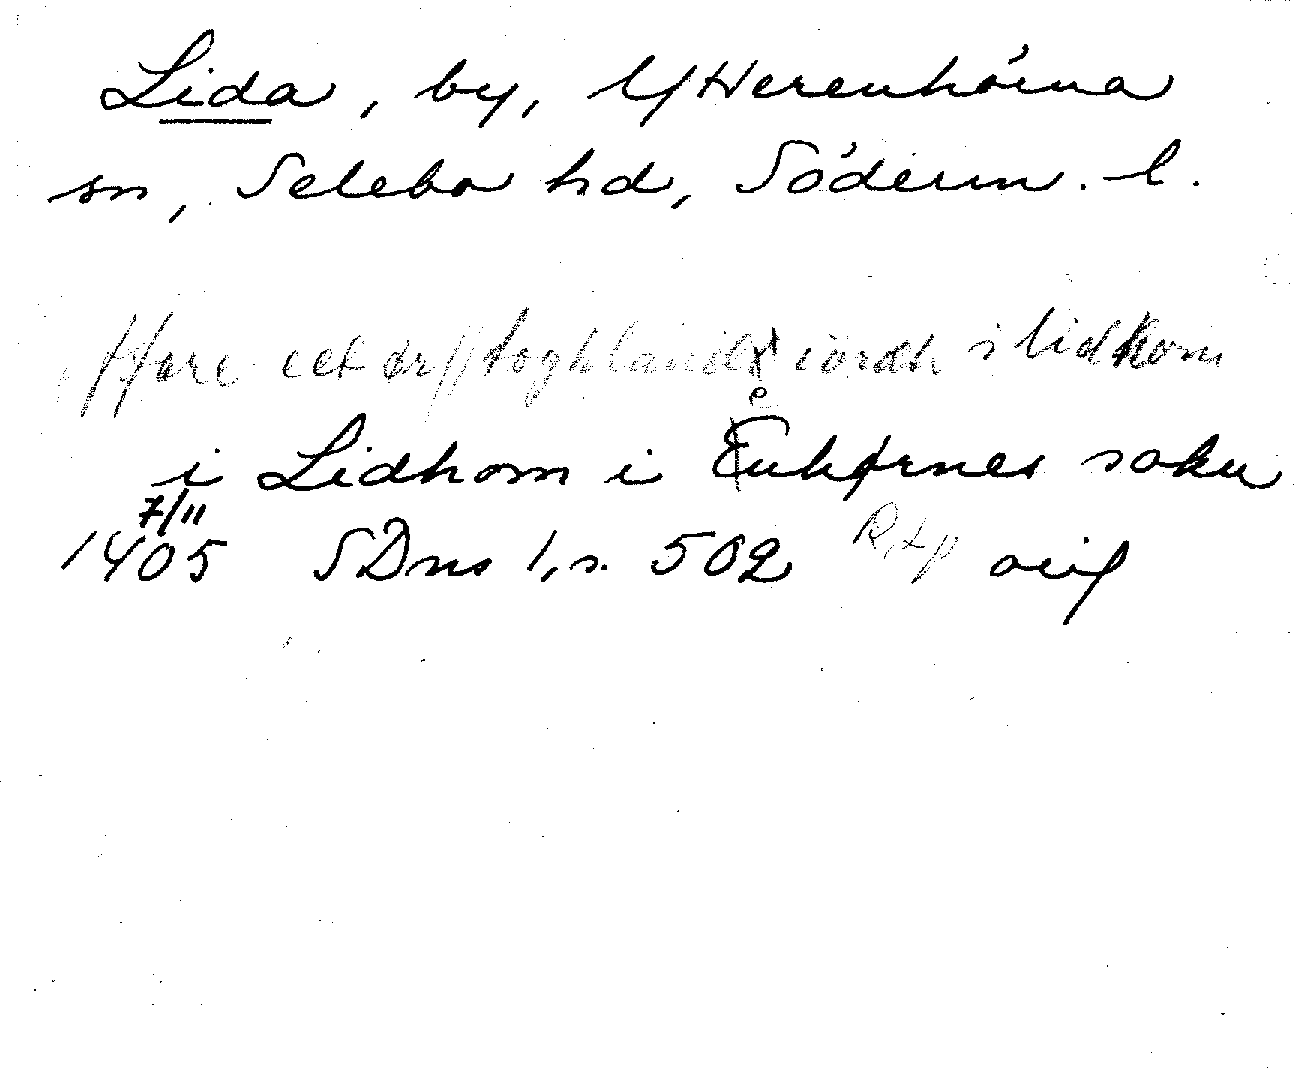 Lida, by, Ytterenhörna
sn, Selebo hd, Söderm. l.
ffore eet ør// toghland iordh i lidhom
i Lidhom i Enhørnes sokn
7/11
1405 SDns 1, s. 502 orig